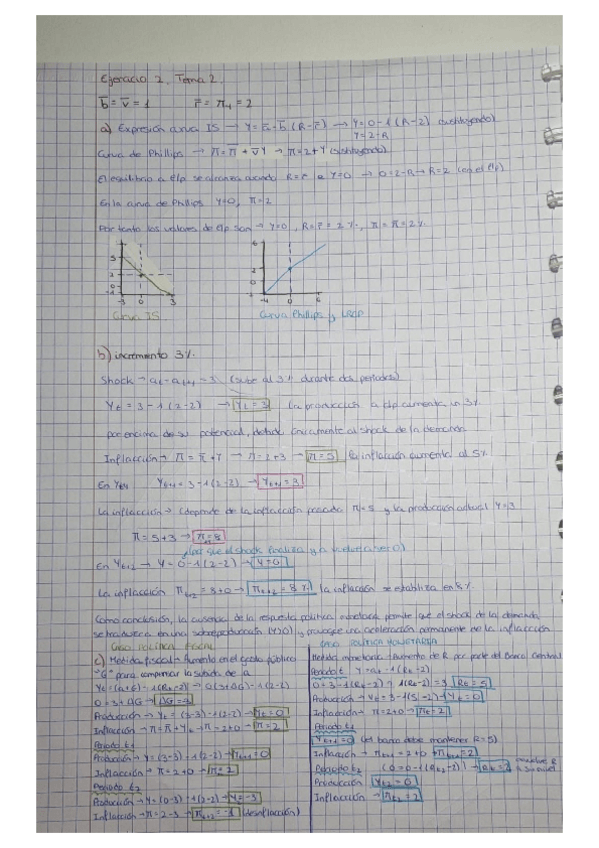 Ejercicio 2. Tema 2.
b̄ = v̄ = 1   r̄ = π-1 = 2
a) Expresión curva IS → Y = ā - b̄ (R - r̄) → Y = 0 - 1 (R - 2) (sustituyendo)
Y = 2 - R
Curva de Phillips → π = π̄ + v̄Y → π = 2 + Y (sustituyendo)
El equilibrio a l/p se alcanza cuando R = r̄ e Y = 0 → 0 = 2 - R → R = 2 (en el l/p)
En la curva de Phillips Y = 0, π = 2
Por tanto los valores de l/p son → Y = 0, R = r̄ = 2 %, π = π̄ = 2 %
Curva IS
Curva Phillips y LRAP
b) incremento 3 %
Shock → at = at+1 = 3 (sube al 3 % durante dos periodos)
Yt = 3 - 1 (2 - 2) → Yt = 3 La producción a c/p aumenta un 3 %
por encima de su potencial, debido únicamente al shock de la demanda
Inflacción → π = π̄ + Y → π = 2 + 3 → π = 5 la inflación aumenta al 5 %
En Yt+1 Yt+1 = 3 - 1 (2 - 2) → Yt+1 = 3
La inflacción → (depende de la inflacción pasada π = 5 y la producción actual Y = 3
π = 5 + 3 → π = 8
(ya que el shock finaliza y a vuelve a ser 0)
En Yt+2 → Y = 0 - 1 (2 - 2) → Y = 0
La inflacción πt+2 = 8 + 0 → πt+2 = 8 % la inflacción se estabiliza en 8 %
Como conclusión, la ausencia de la respuesta política monetaria permite que el shock de la demanda
se traduzca en una sobreproducción (Y>0) y provoque una aceleración permanente en la inflacción
CASO POLÍTICA FISCAL
c) Medida fiscal → Aumento en el gasto público
"G" para compensar la subida de a
Yt = (a + G) - 1 (Rt - 2) → 0 (3 + ΔG) - 1 (2 - 2)
0 = 3 + ΔG → ΔG = -3
Producción → Yt = (3 - 3) - 1 (2 - 2) → Yt = 0
Inflacción → π = π̄ + Yt → π = 2 + 0 → π = 2
Periodo t1
Producción → Y = (3 - 3) - 1 (2 - 2) → Yt+1 = 0
Inflacción → π = 2 + 0 → π = 2
Periodo t2
Producción → Y = (0 - 3) - 1 (2 - 2) → Y = -3
Inflacción → π = 2 - 3 → πt+2 = -1 (desinflacción)
CASO POLÍTICA MONETARIA
Medida monetaria → Aumento de R por parte del Banco Central
Periodo t Y = a - 1 (Rt - 2)
0 = 3 - 1 (Rt - 2) → 1 (Rt - 2) = 3 Rt = 5
Producción → Yt = 3 - 1 (5 - 2) → Yt = 0
Inflacción → π = 2 + 0 → πt = 2
Periodo t1
Yt+1 = 0 (el banco debe mantener R = 5)
Inflacción → πt+1 = 2 + 0 πt+1 = 2
Periodo t2 (0 = 0 - 1 (Rt2 - 2)) → Rt = 2
Producción Yt2 = 0
Inflacción → πt2 = 2